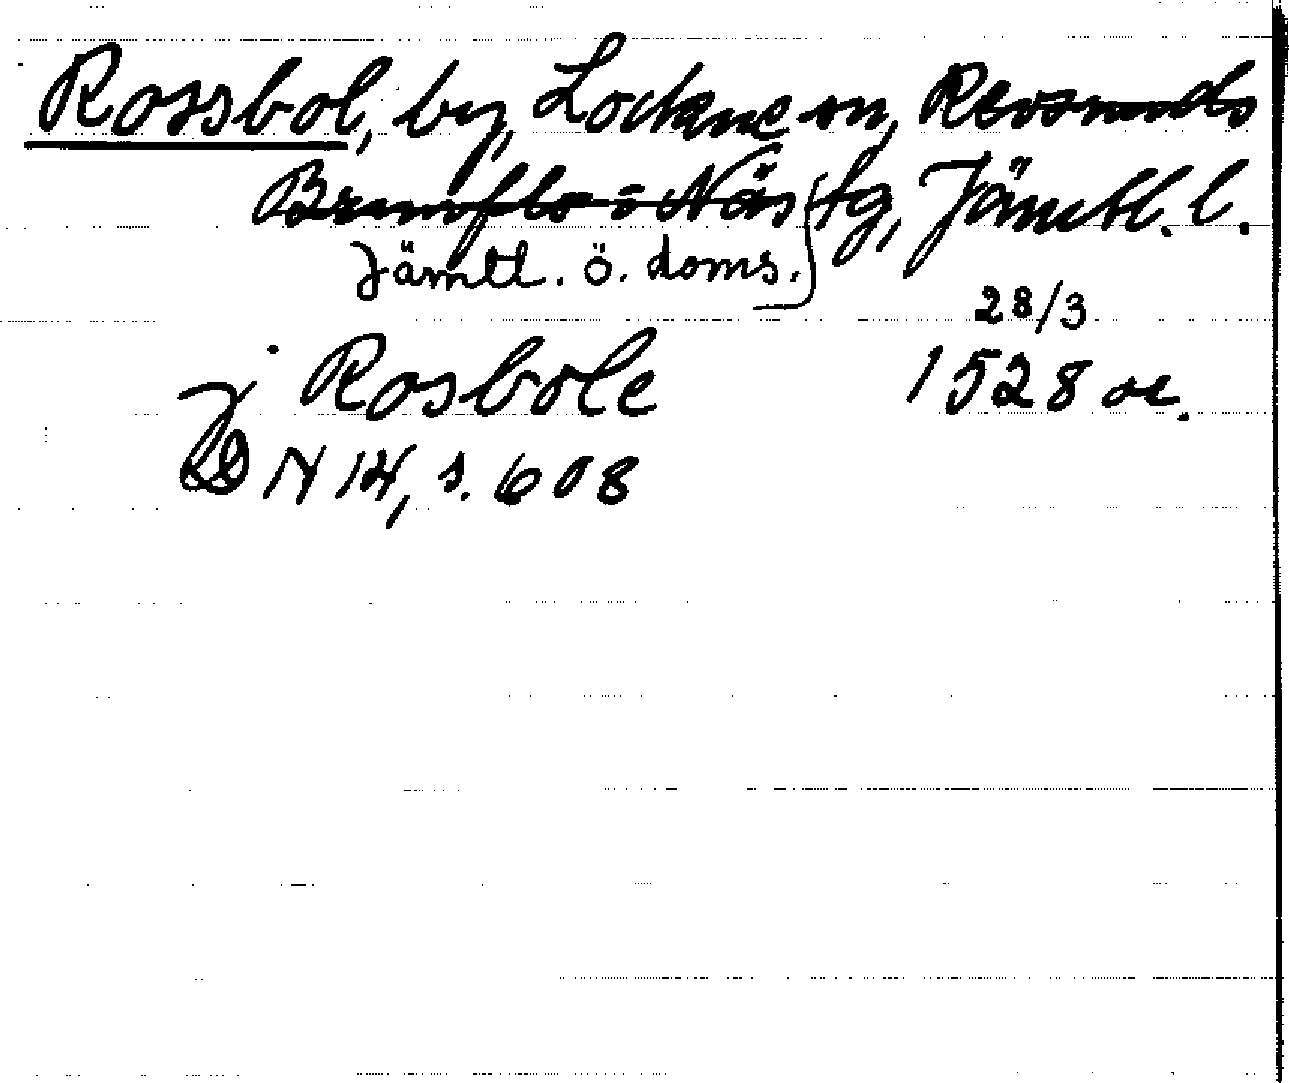 Rossbol, by, Lockne sn, Revsunds
Brunflo o Näs tg, Jämtl. l.
Jämtl. ö. doms.
28/3
j Rosbole 1528 or.
DN 14, s. 608